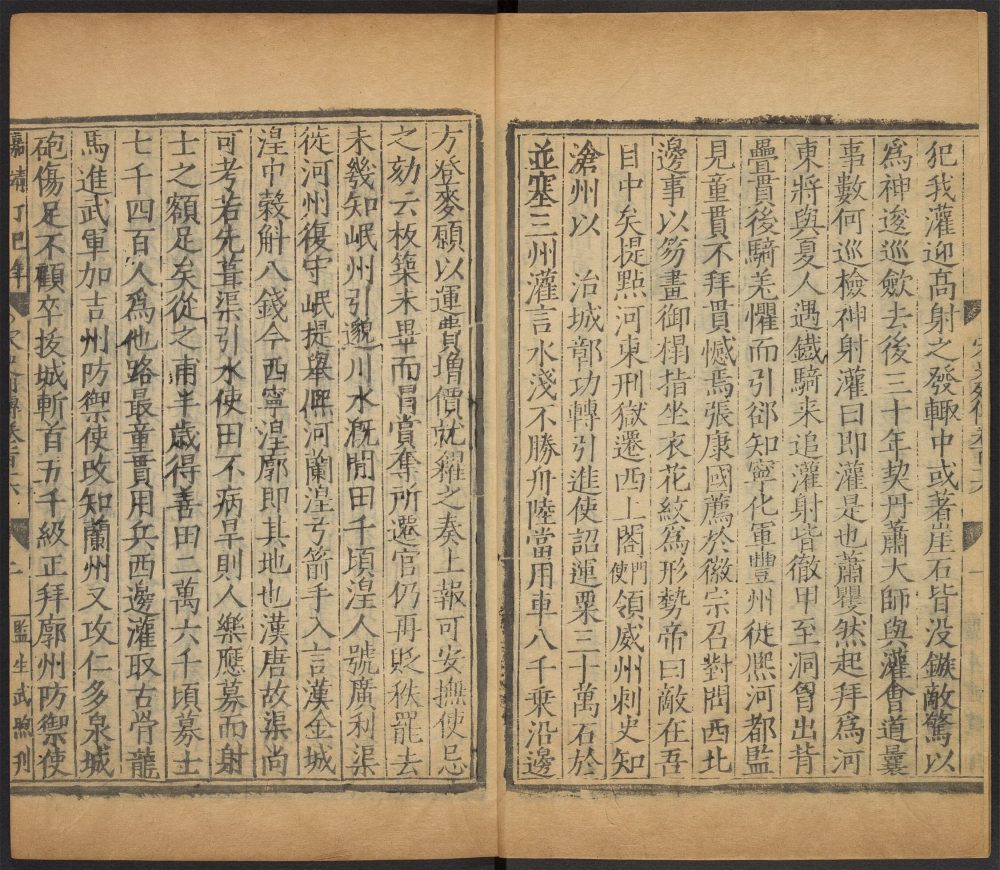 犯我灌迎高射之發輒中或著崖石皆没鏃敵驚以
爲神逡巡歛去後三十年契丹蕭大師與灌會道曩
事數何巡檢神射灌曰即灌是也蕭矍然起拜爲河
東將與夏人遇鐵騎来追灌射皆徹甲至洞曾出背
疊貫後騎羌懼而引郤知寧化軍豐州徙熈河都監
見童貫不拜貫憾焉張康國薦於徽宗召對問西北
邊事以笏畫御榻指坐衣花紋爲形勢帝曰敵在吾
目中矣提點河東刑獄遷西上閤門使領威州刺史知
滄州以 治城鄣功轉引進使詔運粟三十萬石於
並塞三州灌言水淺不勝舟陸當用車八千乗沿邊
方登麥願以運費増價就糴之奏上報可安撫使忌
之劾云板築未畢而冒賞奪所遷官仍再貶秩罷去
未幾知岷州引邈川水溉閒田千頃湟人號廣利渠
徙河州復守岷提舉熈河蘭湟弓箭手入言漢金城
湟中榖斛八錢今西寧湟廓即其地也漢唐故渠尚
可考若先葺渠引水使田不病旱則人樂應募而射
士之額足矣從之甫半歳得善田二萬六千頃募士
七千四百人爲他路最童貫用兵西邊灌取古骨龍
馬進武軍加吉州防禦使改知蘭州又攻仁多泉城
砲傷足不顧卒拔城斬首五千級正拜廓州防禦使
嘉靖丁巳年
二
監生武煦刋